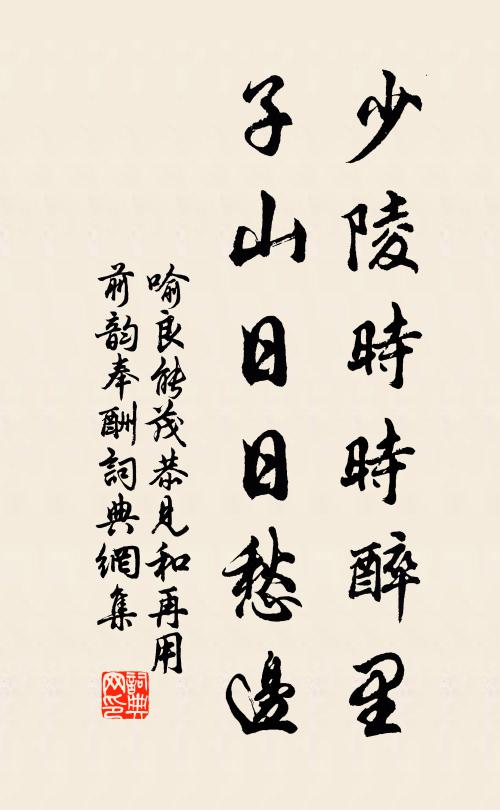 少陵時時醉里
子山日日愁邊
喻良能茂恭見和再用
前韵奉酬詞典網集
詞典网印